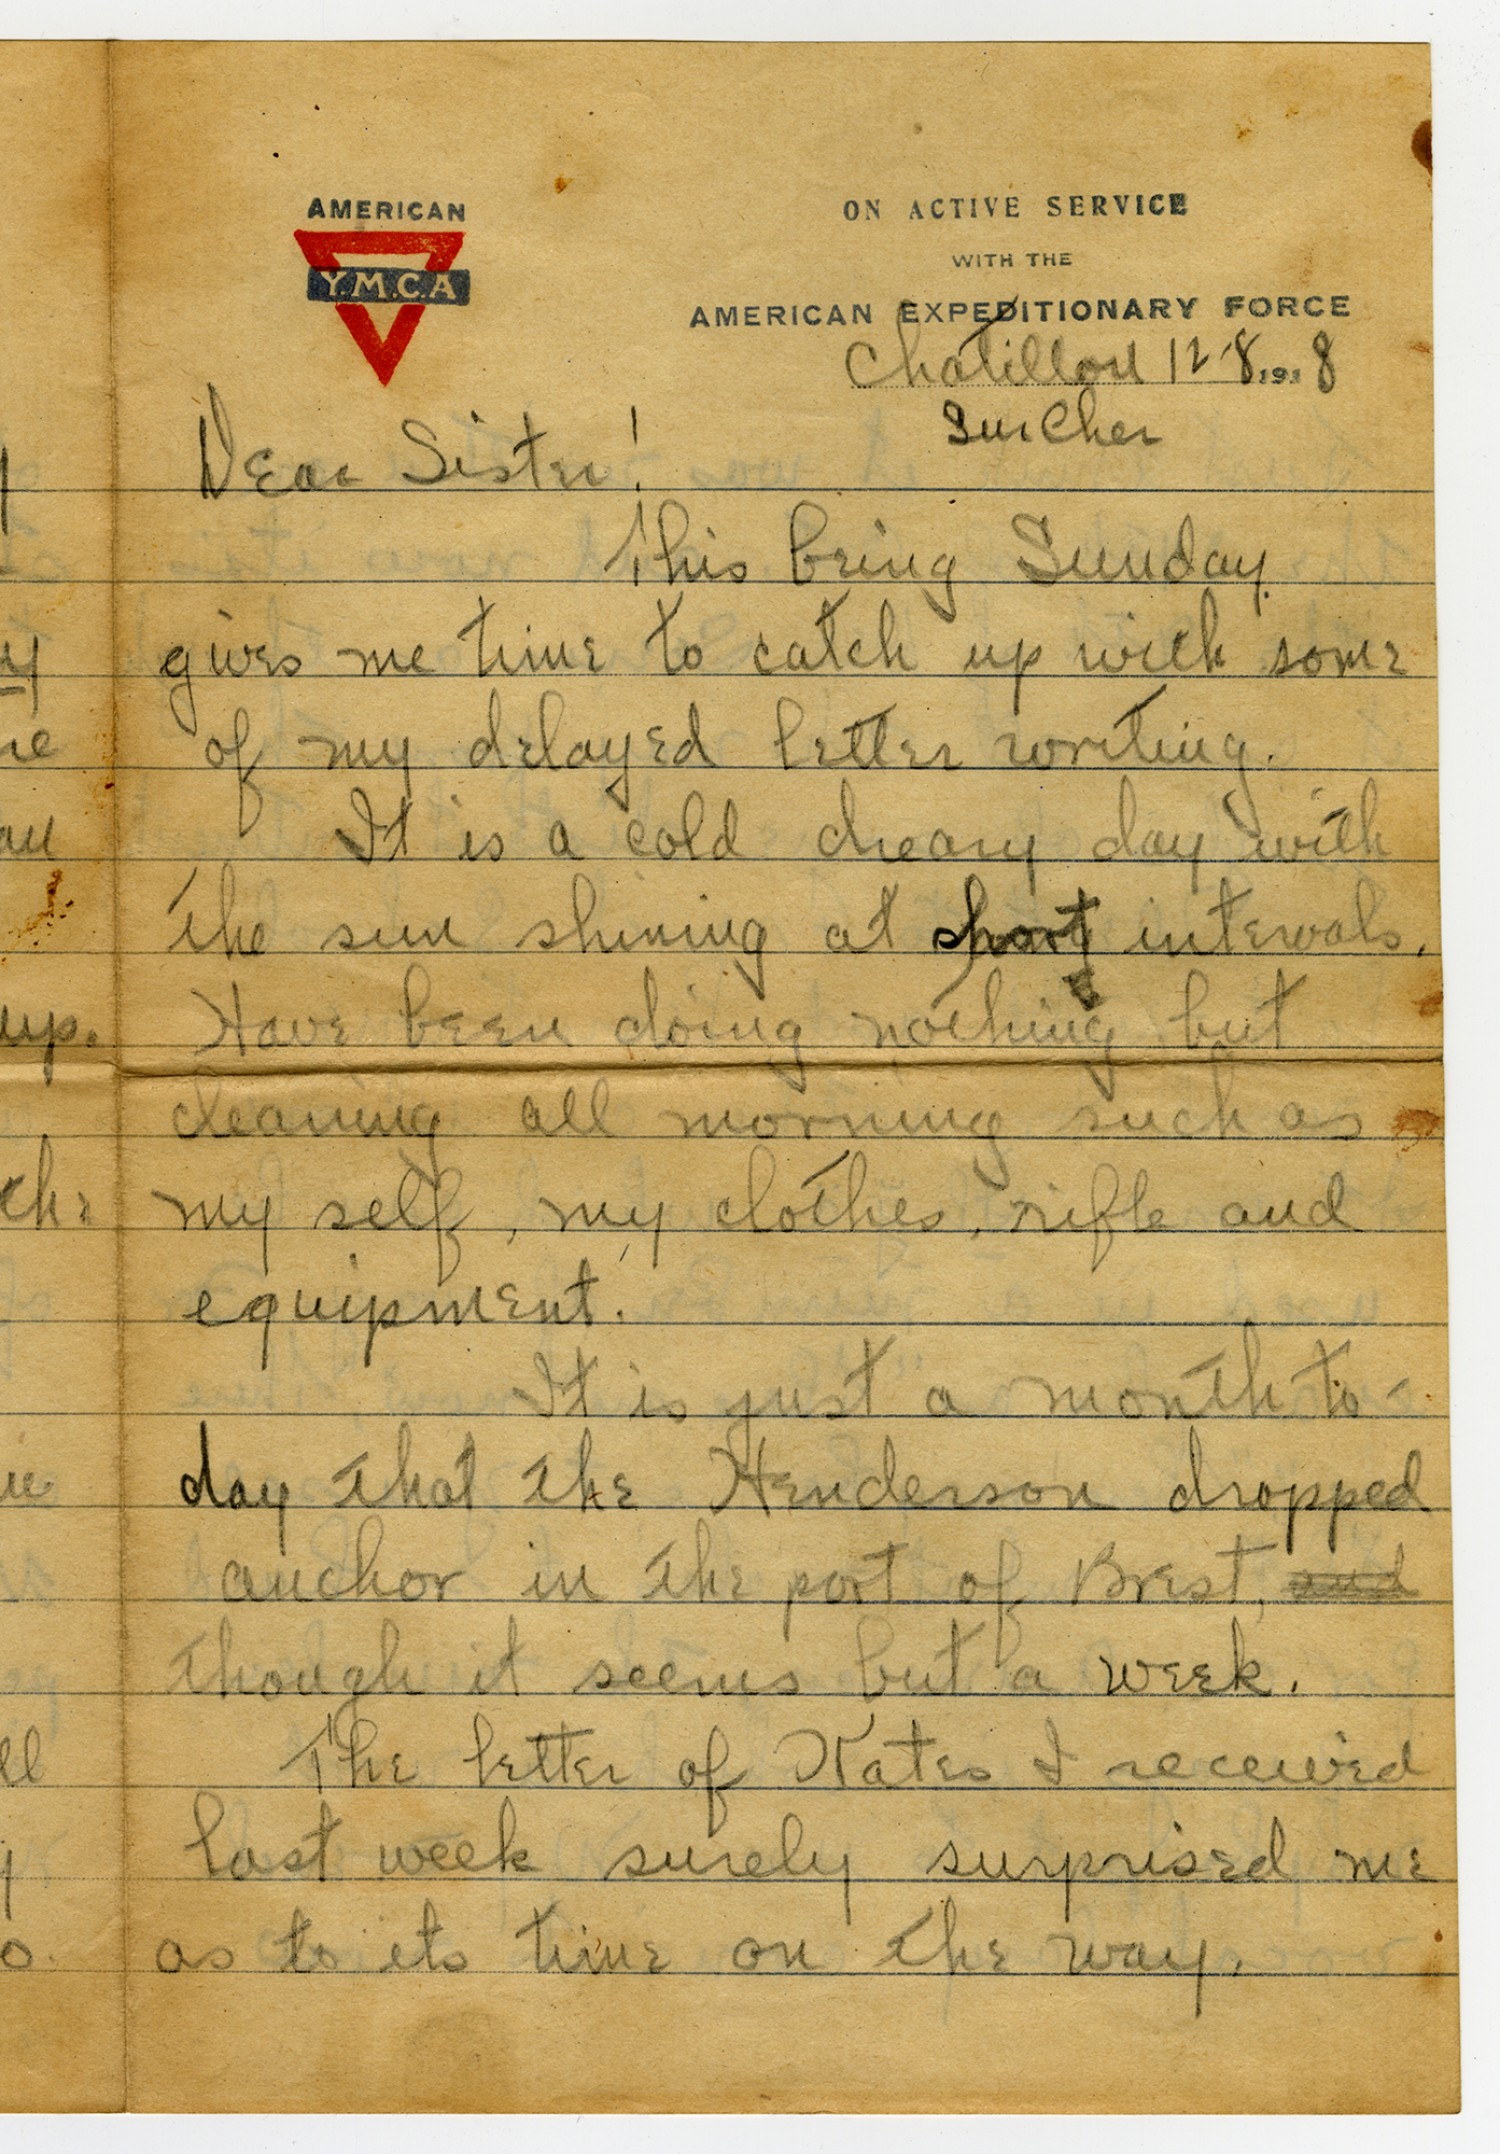 AMERICAN
Y.M.C.A
ON ACTIVE SERVICE
WITH THE
AMERICAN EXPEDITIONARY FORCE
Chatillon 12-8-1918
Sur Cher
Dear Sister!
This being Sunday
gives me time to catch up with some
of my delayed letter writing.
It is a cold dreary day with
the sun shining at short intervals.
Have been doing nothing but
cleaning all morning such as
my self, my clothes, rifle and
equipment.
It is just a month to-
day that the Henderson dropped
anchor in the port of Brest, and
though it seems but a week.
The letter of Kates I received
last week surely surprised me
as to its time on the way.